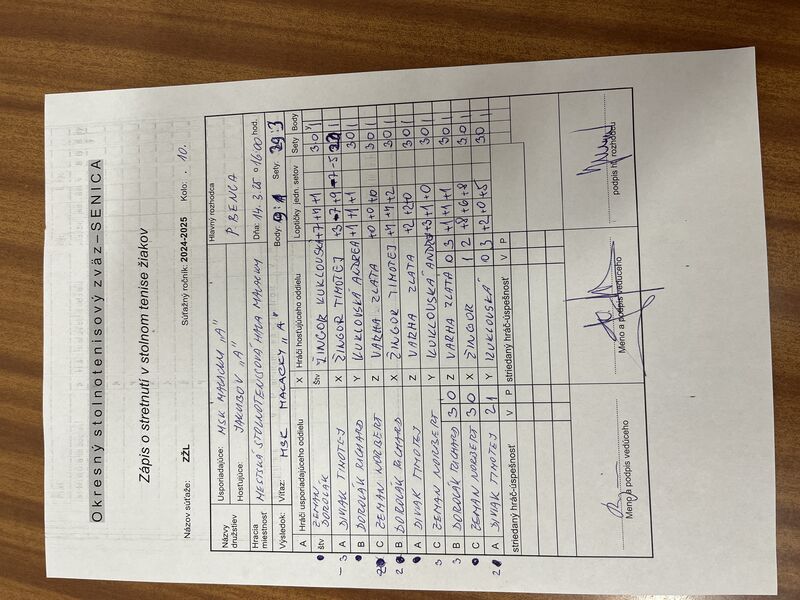 Okresný stolnotenisový zväz–SENICA
Zápis o stretnutí v stolnom tenise žiakov
Názov súťaže: ZŽL Súťažný ročník: 2024-2025 Kolo: 10.
Názvy družstiev Usporiadajúce: MSK MALACKY "A" Hlavný rozhodca
Hosťujúce: JAKUBOV "A" P. BENCA
Hracia miestnosť MESTSKÁ STOLNOTENISOVÁ HALA MALACKY Dňa: 14.3.25 o 16.00 hod.
Výsledok: Víťaz: MSK MALACKY "A" Body: 9:1 Sety: 29:3
A Hráči usporiadajúceho oddielu X Hráči hosťujúceho oddielu Loptičky jedn. setov Sety Body
štv ZEMAN DOROLÁK štv ŽINGOR KUKLOVSKÁ +7 +7 +1 3 0 1
A DIVIAK TIMOTEJ X ŽINGOR TIMOTEJ
B DOROLÁK RICHARD Y KUKLOVSKÁ ANDREA +1 +1 +1 3 0 1
C ZEMAN NORBERT Z VARHA ZLATA +0 +0 +0 3 0 1
B DOROLÁK RICHARD X ŽINGOR TIMOTEJ 3 0 1
A DIVIAK TIMOTEJ Z VARHA ZLATA +2 +2 +0 3 0 1
C ZEMAN NORBERT Y KUKLOVSKÁ ANDR +3 +1 +0 3 0 1
B DOROLÁK RICHARD 3 0 Z VARHA ZLATA 0 3 +1 +1 +1 3 0 1
C ZEMAN NORBERT 3 0 X ŽINGOR 1 2 +8 +6 +8 3 0 1
A DIVIAK TIMOTEJ 2 1 Y KUKLOVSKÁ 0 3 +2 +0 +5 3 0 1
striedaný hráč-úspešnosť V P striedaný hráč-úspešnosť V P
Meno a podpis vedúceho Meno a podpis vedúceho podpis hl. rozhodcu